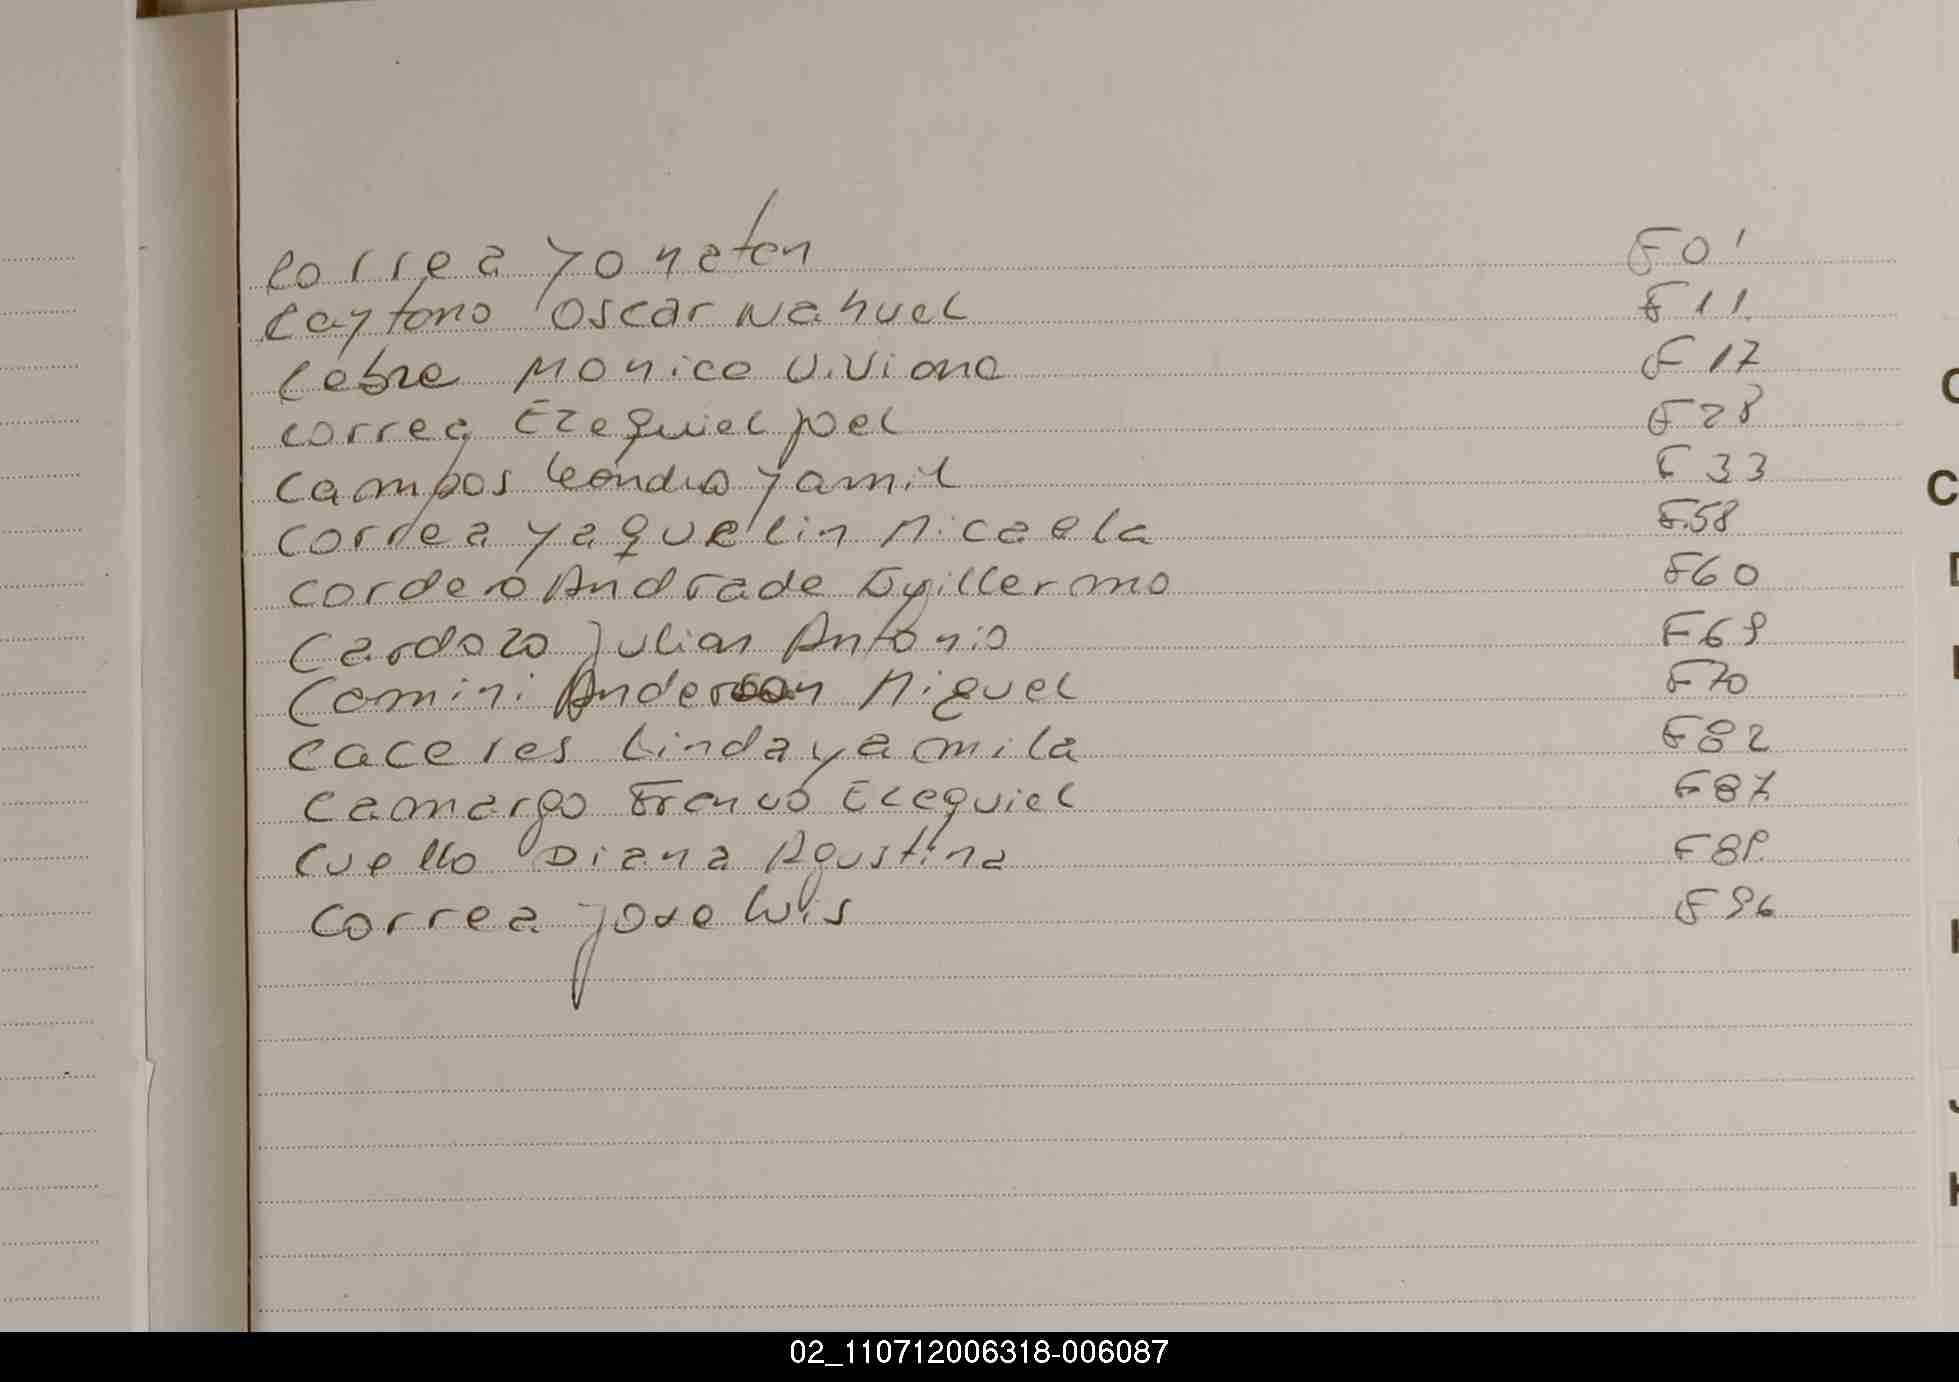 Correa Yonatan F01
Caytano Oscar Nahuel F11.
Cabre Monica Viviana F17
Correa Ezequiel Joel F28
Campos Leandro Yamil F33
Correa Yaquelin Micaela F58
Cordero Andrade Guillermo F60
Cardozo Julian Antonio F69
Camini Anderson Miguel F70
Caceres Linda Yamila F82
Camargo Franco Ezequiel F87.
Cuello Diana Agustina
Correa Jose Luis F96
C
C
02_110712006318-006087